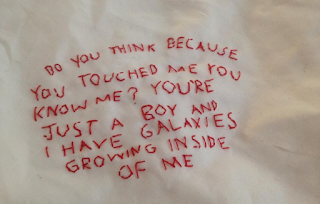 DO YOU THINK BECAUSE
YOU TOUCHED ME YOU
KNOW ME? YOU'RE
JUST A BOY AND
I HAVE GALAXIES
GROWING INSIDE
OF ME